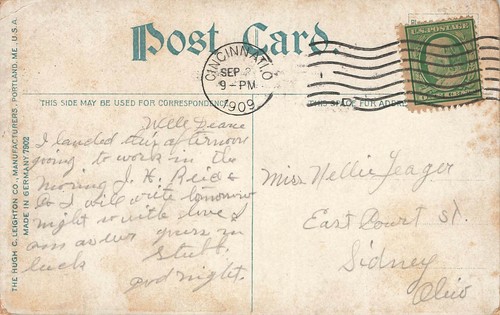 Post Card
CINCINNATI, O.
SEP
9-PM
1909
U.S. POSTAGE
THIS SIDE MAY BE USED FOR CORRESPONDENCE
THIS SPACE FOR ADDR
THE HUGH C. LEIGHTON CO., MANUFACTURERS, PORTLAND, ME. U.S.A.
MADE IN GERMANY 7902
Well
I landed this afternoon
going to work in the
morning J. H.
I will write tomorrow
night with love I
am as ever yours in
luck
good night.
Miss Nellie Yeager
East Court St.
Sidney
Ohio